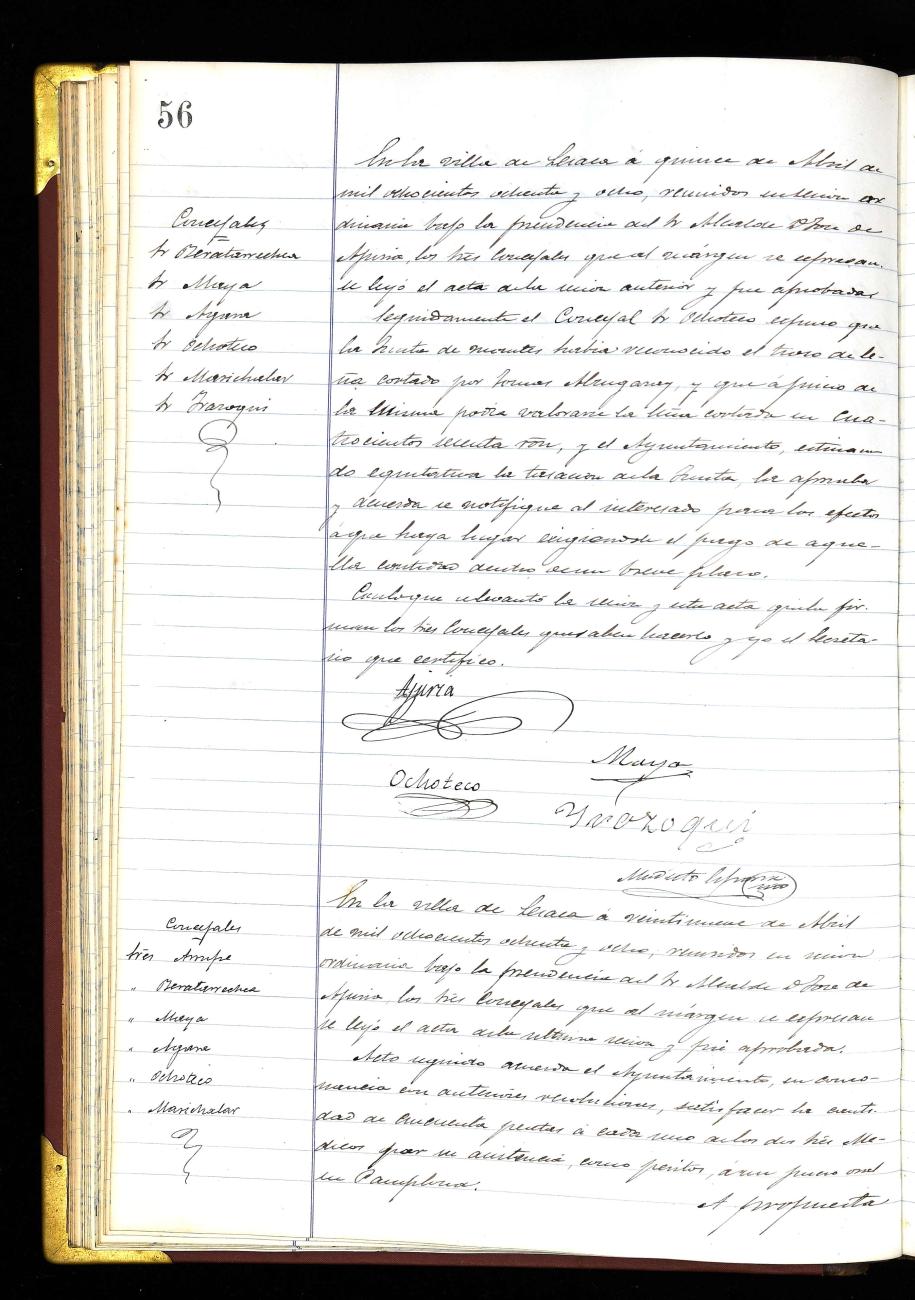 56
En la villa de Lesaca á quince de Abril de
mil ochocientos ochenta y ocho, reunidos en sesion or
dinaria bajo la presidencia del Sr Alcalde D Jose de
Apiria, los Sres Concejales que al márgen se espresan.
se leyó el acta de la sesion anterior y fue aprobada.
Seguidamente el Concejal Sr Ochoteco espuso que
la Junta de montes habia reconocido el trozo de le-
ña cortado por Tomas, y que á juicio de
la misma podia valorarse la leña cortada en cua-
trocientos sesenta rvn, y el Ayuntamiento, estiman
do equitativa la tasacion de la Junta, la aprueba
y acuerda se notifique al interesado para los efectos
á que haya lugar exigiendole el pago de aque-
lla cantidad dentro de un breve plazo.
Con lo que se levantó la sesion y esta acta que la fir-
man los Sres Concejales que saben hacerlo y yo el Secreta-
rio que certifico.
Concejales
Sr Beratarrechea
Sr Maya
Sr Ayara
Sr Ochoteco
Sr Marichalar
Sr Irazoqui
Apiria
Maya
Ochoteco
Yrazoqui
Modesto
En la villa de Lesaca á veintinueve de Abril
de mil ochocientos ochenta y ocho, reunidos en sesion
ordinaria bajo la presidencia del Sr Alcalde D Jose de
Apiria los Sres Concejales que al márgen se espresan
se leyó el acta de la ultima sesion y fué aprobada.
Acto seguido acuerda el Ayuntamiento, en conso-
nancia con anteriores resoluciones, satisfacer la canti-
dad de cincuenta pesetas á cada uno de los dos Sres Me-
dicos por su asistencia, como peritos, á un juicio oral
en Pamplona.
A propuesta
Concejales
Sres Arrupe
" Beratarrechea
" Maya
" Ayara
" Ochoteco
" Marichalar